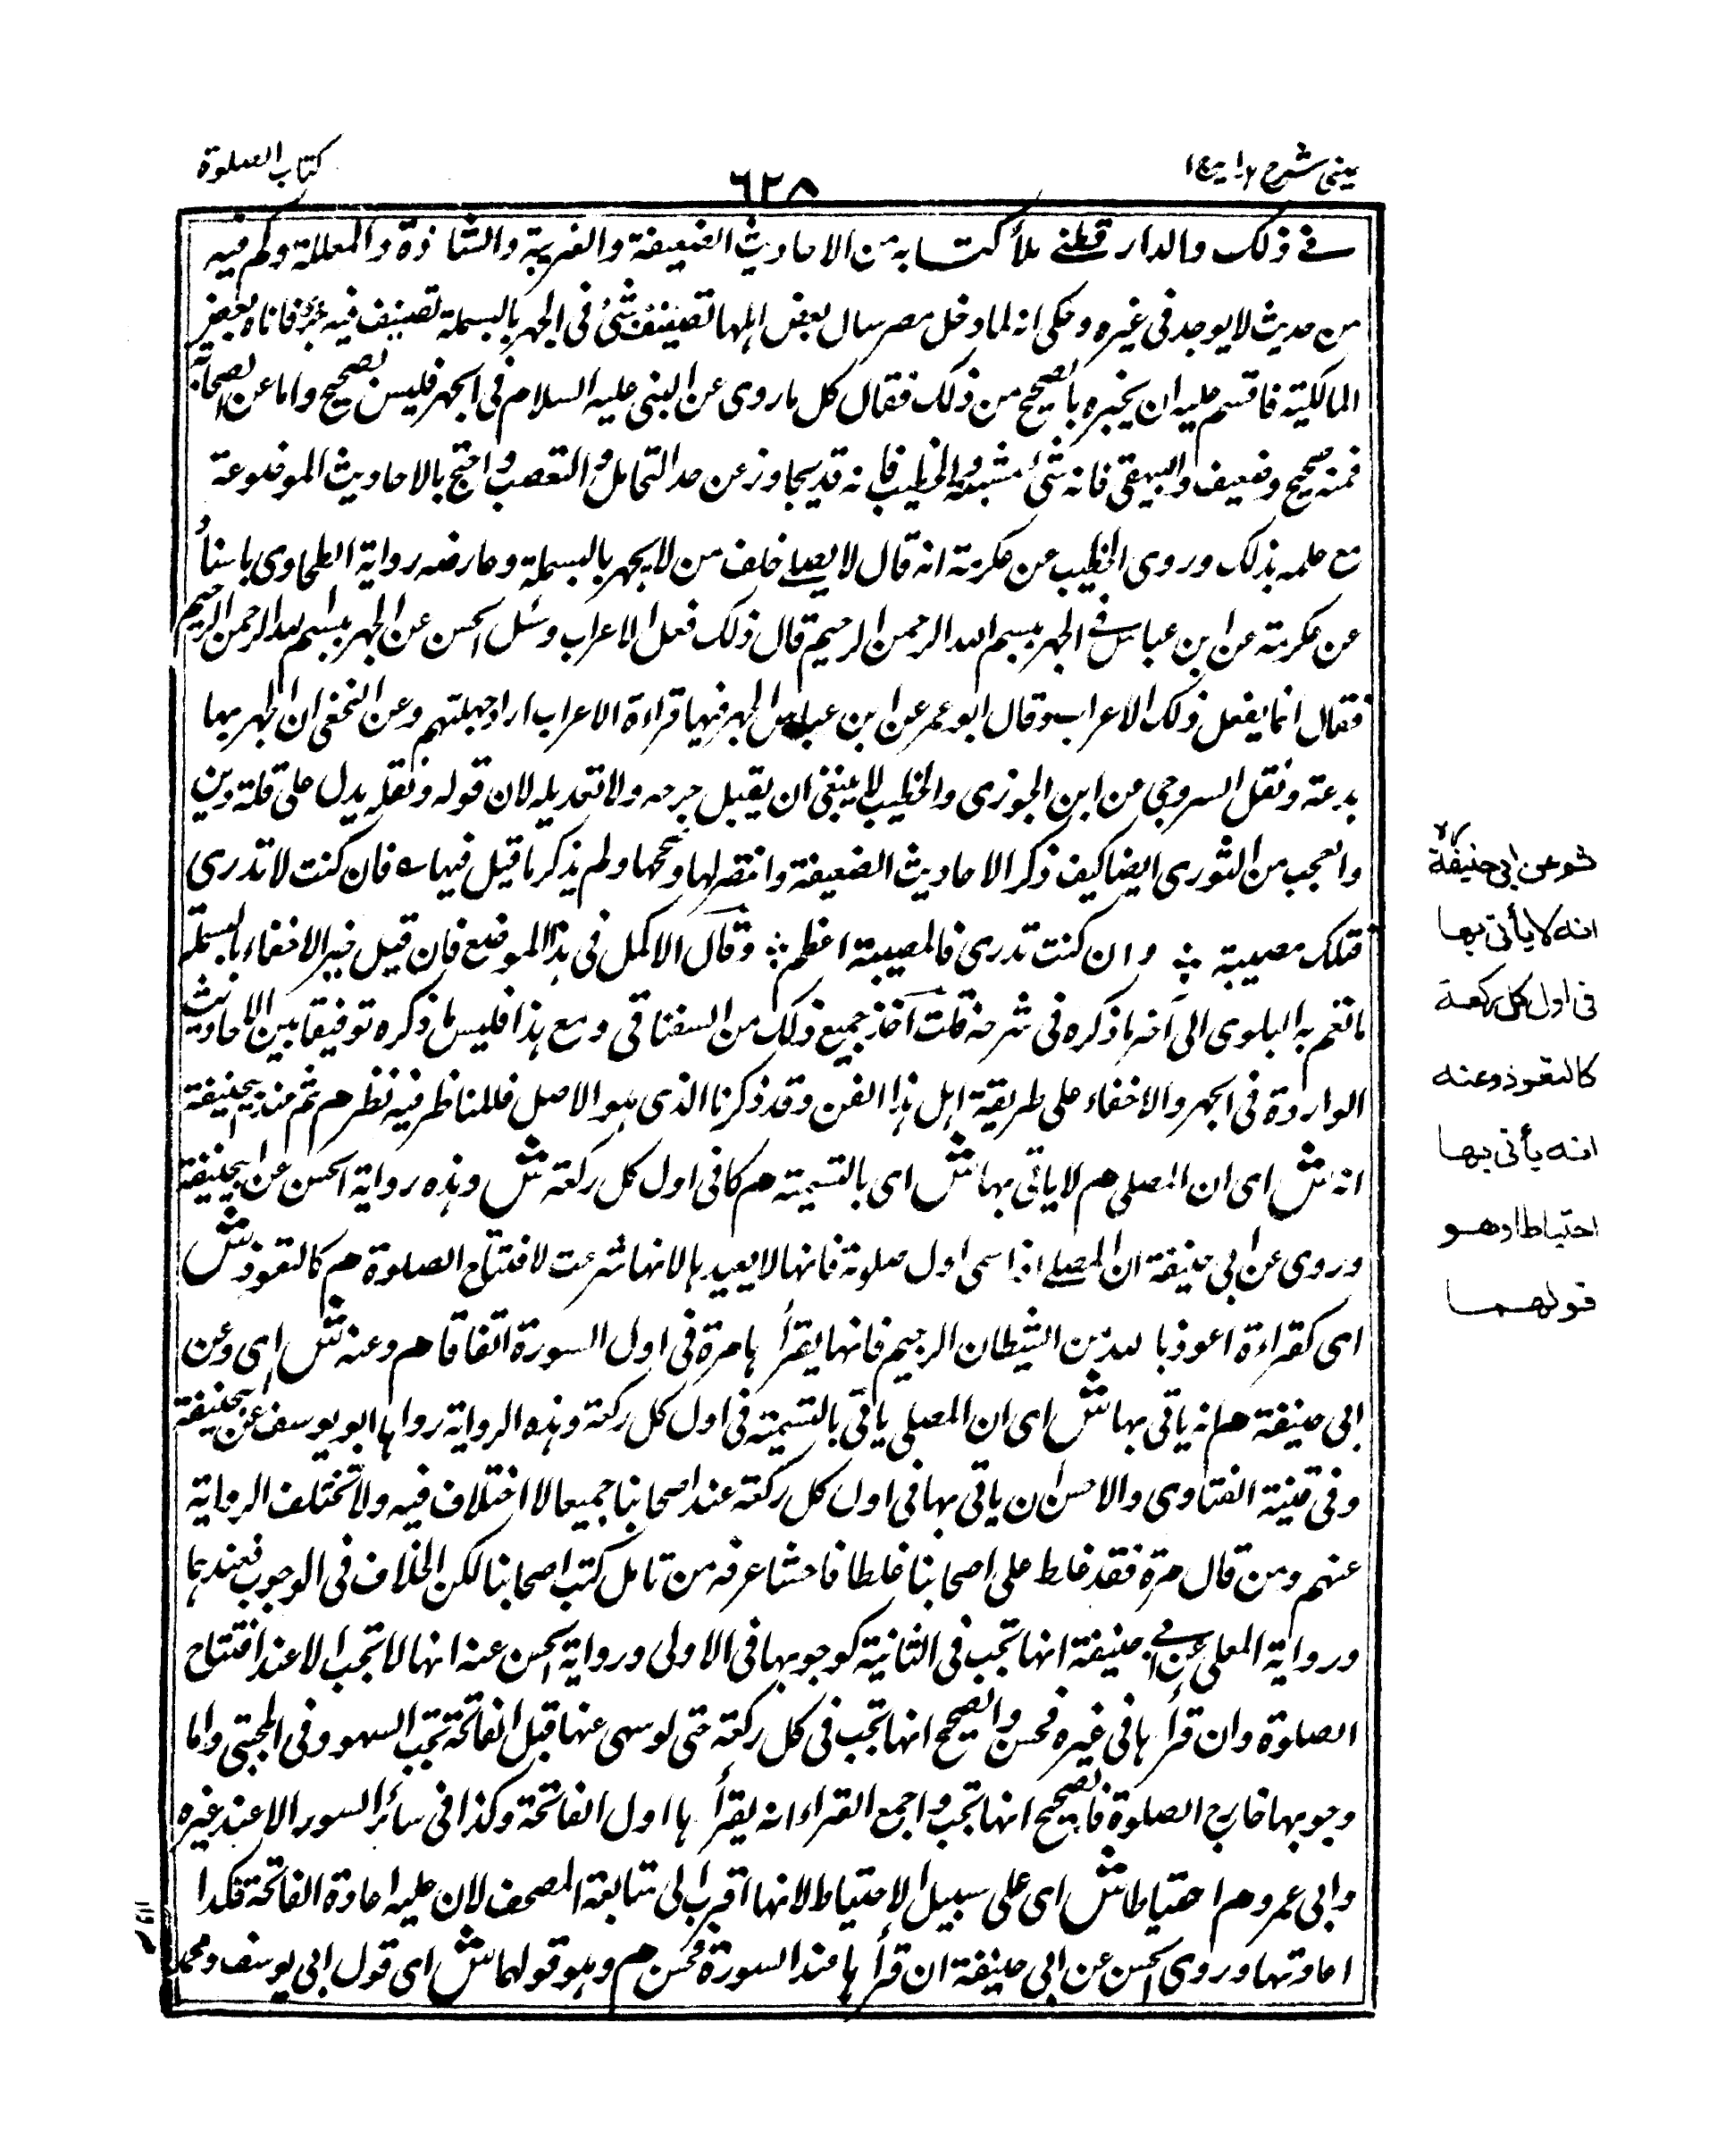 عینی شرح ہدایہ ج ١
٦٢٨
کتاب الصلوة
فے ذلک والدار قطنے ملأ کتابه من الاحادیث الضعیفة والغریبة والشاذة والمعللة وکم فیه
من حدیث لا یوجد فی غیره وحکی انه لما دخل مصر سال بعض اہلها تصنیف شئ فی الجهر بالبسملة تصنیف فیه جزء فاتاه بعض
المالکیة فاقسم علیه ان یخبره بالصحیح من ذلک فقال کل ما روی عن النبی علیه السلام فی الجهر فلیس بصحیح واما عن الصحابة
فمنه صحیح وضعیف والبیهقی فانه شئ مشبعه والخطیب فانه قد یجاوز عن حد التحامل والتعصب واحتج بالاحادیث الموضوعة
مع علمه بذلک وروی الخطیب عن عکرمة انه قال لا یصلے خلف من لا یجهر بالبسملة وعارضه روایة الطحاوی باسناد
عن عکرمة عن ابن عباس فے الجهر ببسم الله الرحمن الرحیم قال ذلک فعل الاعراب وسئل الحسن عن الجهر ببسم الله الرحمن الرحیم
فقال انما یفعل ذلک الاعراب وقال ابو عمر عن ابن عباس الجهر فیها قراءة الاعراب اراد جهلتهم وعن النخعی ان الجهر بها
بدعة ونقل السروجی عن ابن الجوزی والخطیب لا ینبغی ان یقبل جرحه ولا تعدیله لان قوله ونقله یدل علی قلة دین
والعجب من الثوری ایضا کیف ذکر الاحادیث الضعیفة وانتصر لها وصححها ولم یذکر ما قیل فیها فان کنت لا تدری
فتلک مصیبة ؞ وان کنت تدری فالمصیبة اعظم ؞ وقال الاکمل فی هذا الموضع فان قیل خبر الاخفاء بالبسملة
ما تعم به البلوی الی آخر ما ذکره فی شرحه قلت آخذ جمیع ذلک من السغناقی ومع هذا فلیس ما ذکره توفیقا بین الاحادیث
الواردة فی الجهر والاخفاء علی طریقة اہل هذا الفن وقد ذکرنا الذی هو الاصل فللمناظر فیه نظر م ثم عند ابیحنیفة
انه ش ای ان المصلی م لا یاتی بها ش ای بالتسمیة م کا فی اول کل رکعة ش وهذه روایة الحسن عن ابیحنیفة
وروی عن ابی حنیفة ان المصلے اذا سمی اول صلوته فانها لا یعیدها لانها شرعت لافتتاح الصلوة م کالتعوذ ش
ای کقراءة اعوذ بالله من الشیطان الرجیم فانها یقرأها مرة فی اول السورة اتفاقا م وعنه ش ای وعن
ابی حنیفة م انه یاتی بها ش ای ان المصلی یاتی بالتسمیة فی اول کل رکعة وهذه الروایة رواها ابو یوسف عن ابیحنیفة
وفی قنیة الفتاوی والاحسن ان یاتی بها فی اول کل رکعة عند اصحابنا جمیعا لا اختلاف فیه ولا تختلف الروایة
عنهم ومن قال مرة فقد غلط علی اصحابنا غلطا فاحشا عرفه من تامل کتب اصحابنا لکن الخلاف فی الوجوب فعندهما
وروایة المعلی عن ابی حنیفة انها تجب فی الثانیة کوجوبها فی الاولی وروایة الحسن عنه انها لا تجب الا عند افتتاح
الصلوة وان قرأها فی غیره فحسن والصحیح انها تجب فی کل رکعة حتی لو سهی عنها قبل الفاتحة تجب السهو وفی المجتبی واما
وجوبها خارج الصلوة فالصحیح انها تجب واجمع القراء انه یقرأها اول الفاتحة وکذا فی سائر السور الا عند غیره
وابی عمرو م احتیاطا ش ای علی سبیل الاحتیاط لانها اقرب الی متابعة المصحف لان علیه اعادة الفاتحة فکذا
اعادتها وروی الحسن عن ابی حنیفة ان قرأها عند السورة فحسن م وهو قولهما ش ای قول ابی یوسف ومحمد
ثم عن ابی حنیفة
انه لا یأتی بها
فی اول کل رکعة
کالتعوذ وعنه
انه یأتی بها
احتیاطا وهو
قولهما